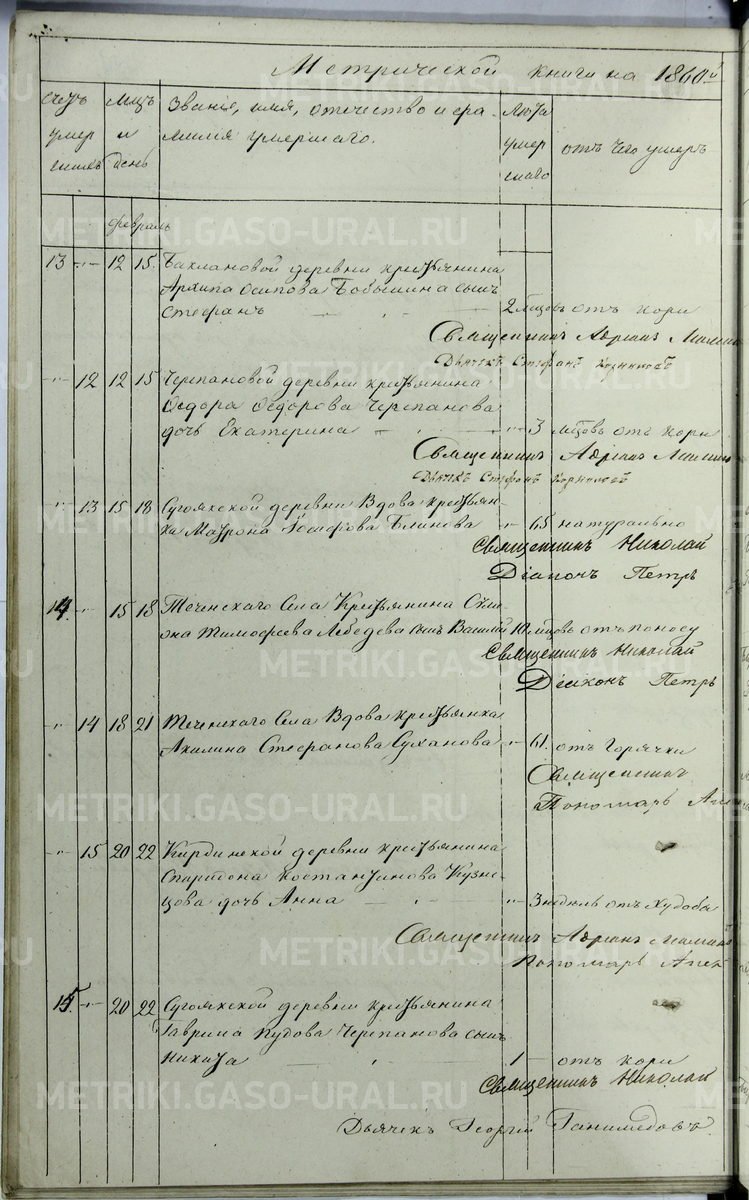 Метрической книги на 1860й
Счетъ умершихъ
Мцъ и день
Званіе, имя, отчество и фамилія умершаго.
Лѣта умершаго
отъ чего умеръ
февраль
13 12 15. Баклановой деревни крестьянина
Архипа Осипова Бобышина сынъ
Стефанъ 2 мѣцовъ отъ кори
Священникъ Адріанъ
Дьячекъ Стефанъ
12 12 15 Черепановой деревни крестьянина
Ѳедора Ѳедорова Черепанова
дочь Екатерина 3 мѣцовъ отъ кори
Священникъ Адріанъ
Дьячекъ Стефанъ
13 15 18 Сугоякской деревни Вдова крестьян-
ка Маѵрона Іосифова Блинова 65 натурально
Священникъ Николай
Діаконъ Петръ
14. 15 18 Теченскаго Села Крестьянина
Тимофеева Лебедева сынъ Василій 10 мѣцовъ отъ поносу
Священникъ Николай
Діаконъ Петръ
14 18 21 Теченскаго Села Вдова крестьянка
Акилина Стефанова Суханова 61. отъ Горячки
Священникъ
Пономарь
15 20 22 Кирдинской деревни крестьянина
Спиридона Костантинова Кузне-
цова дочь Анна 3 недѣль отъ Худобы
Священникъ Адріанъ
Пономарь
15. 20 22 Сугоякской деревни крестьянина
Гаврила Черепанова сынъ
Никита 1 отъ кори
Священникъ Николай
Дьячекъ Георгій Ганимедовъ
METRIKI.GASO-URAL.RU